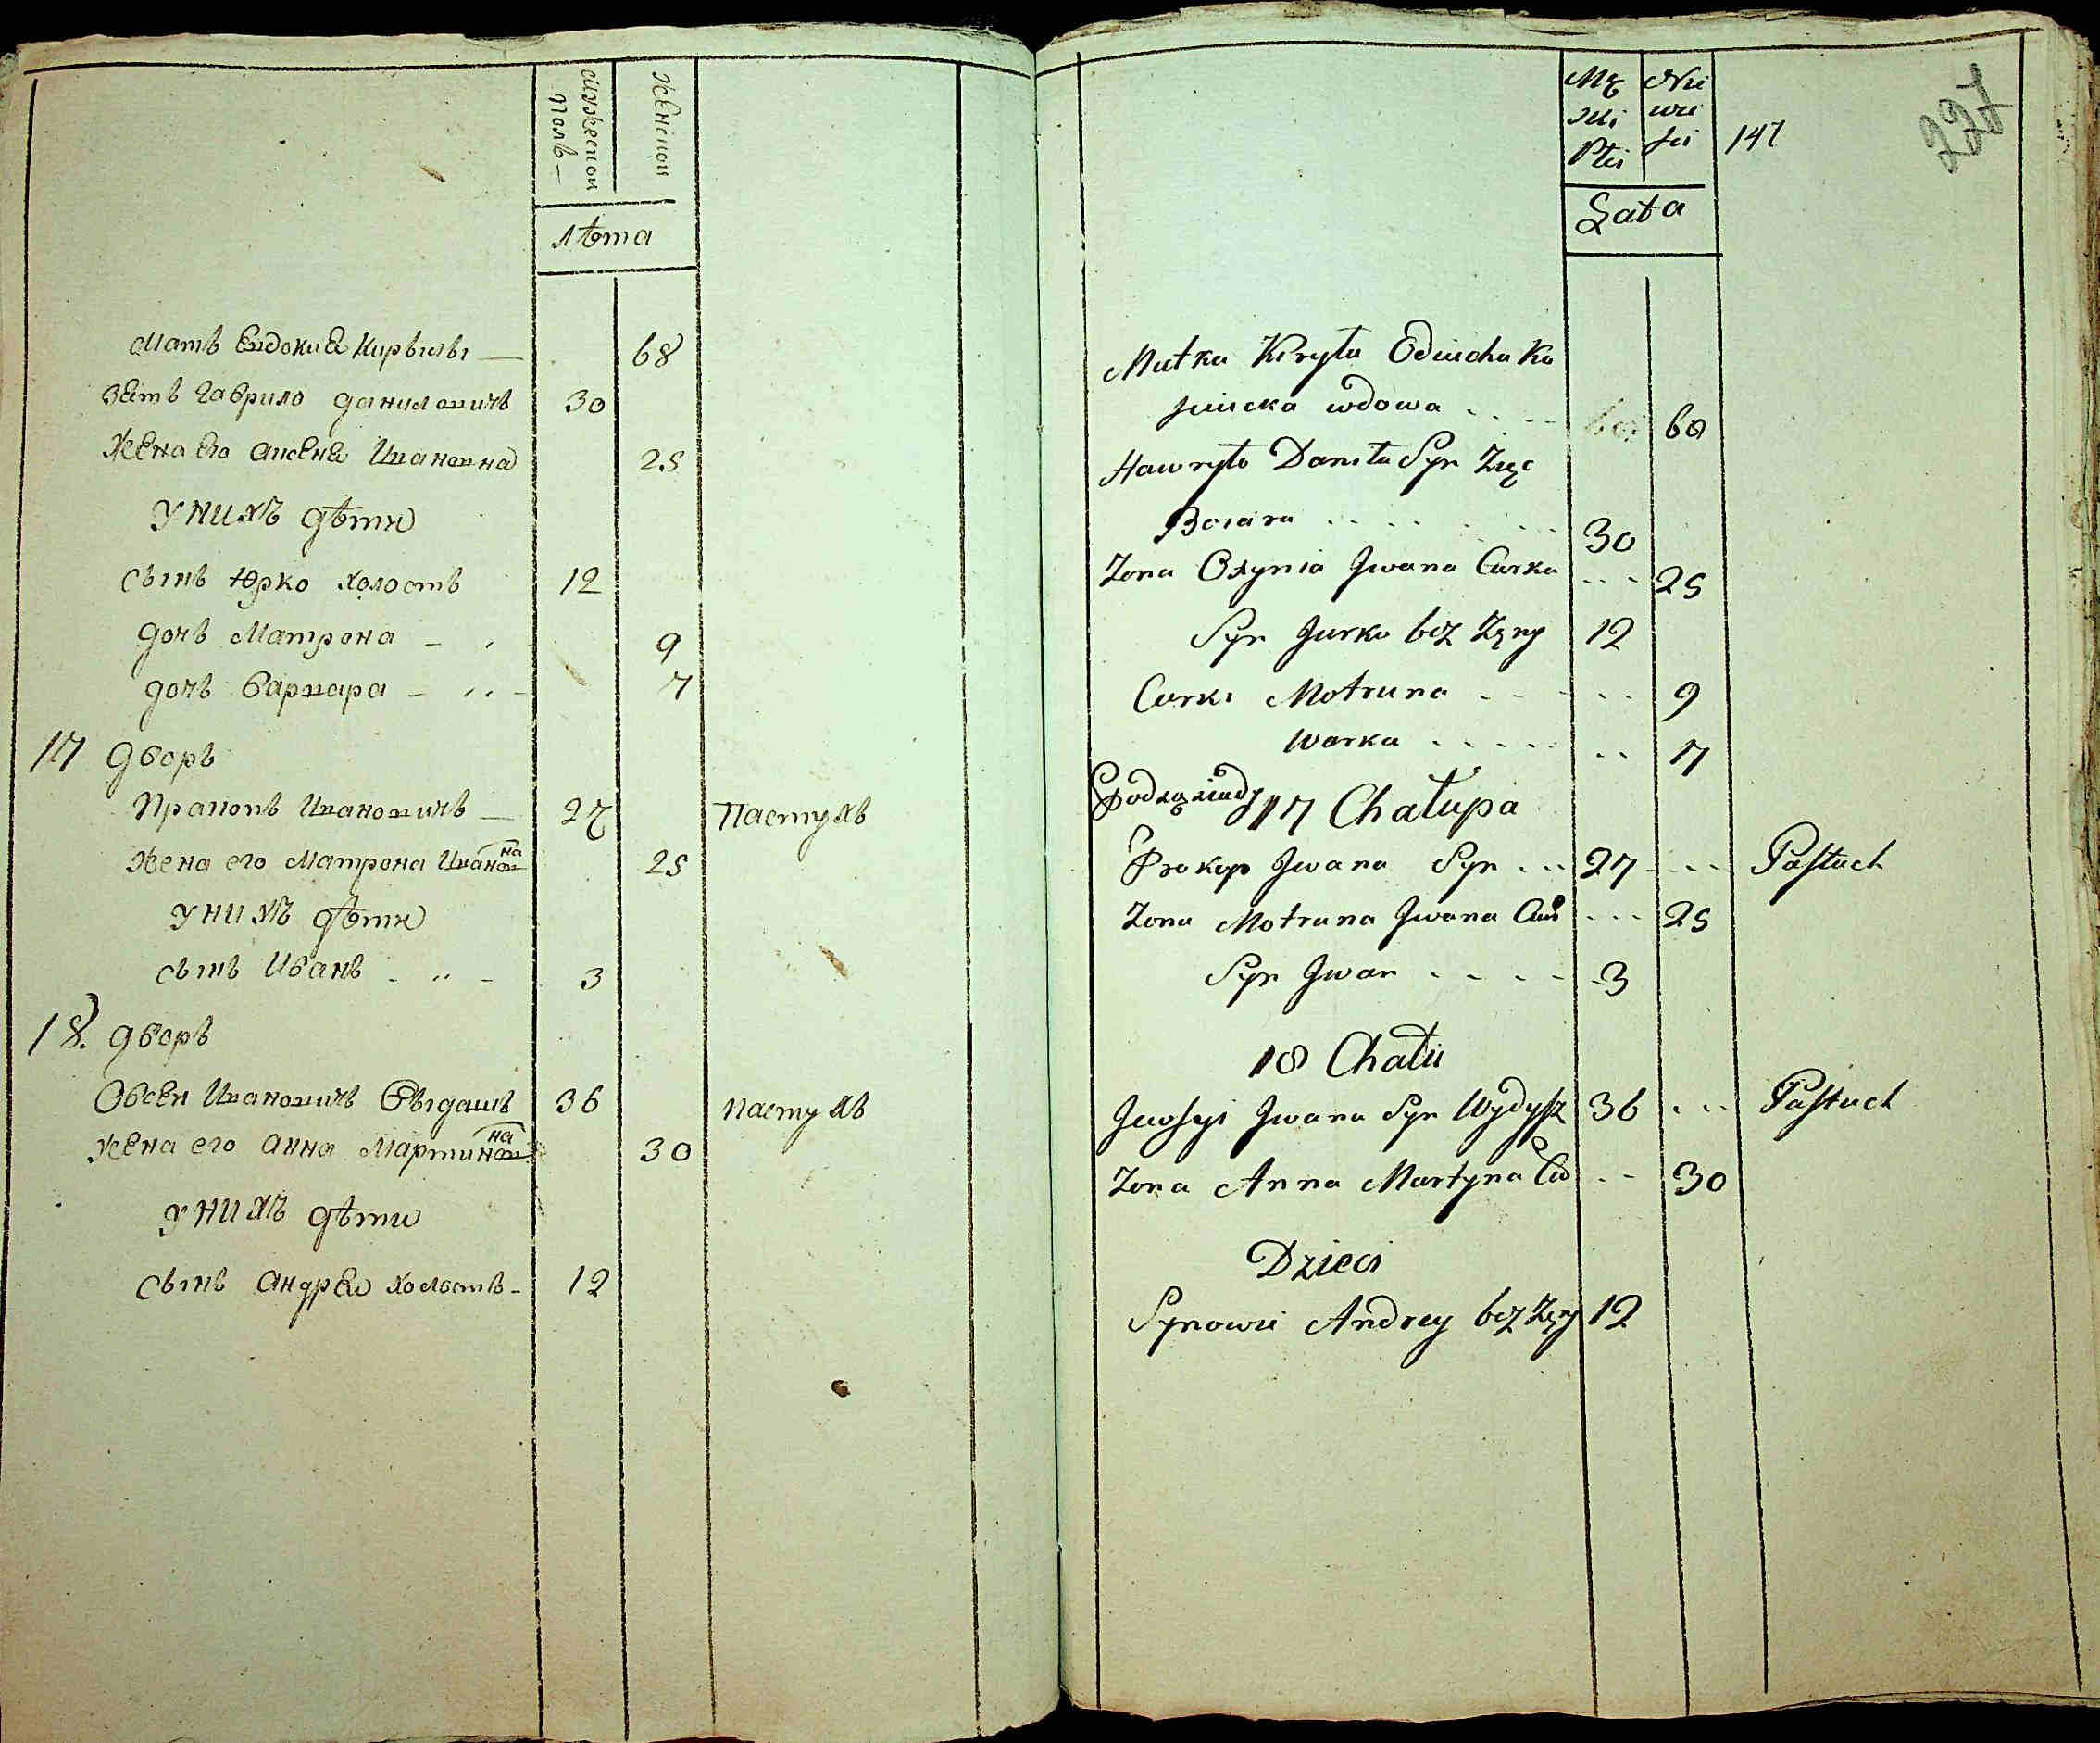 Мужескои
Полъ —
Женскои
Лѣта
Мать Евдокиа Кирьилы —
68
Зать Гаврило Даниловичъ 30
Жена его Аксенеа Ивановна 25
У нихъ дѣти
Сынъ Юрко холостъ 12
дочь Матрона — 9
дочь Варвара — 7
17 дворъ
Пракопъ Ивановичъ — 27 Пастухъ
Жена его Матрона Ивановна 25
У нихъ дѣти
Сынъ Иванъ 3
18. дворъ
Овсеи Ивановичъ Выдашъ 36 Пастухъ
Жена его Анна Мартиновна 30
У нихъ дѣти
Сынъ Андреи холостъ 12
Mę
ski
Płci
Nie
wie
sci
147
227
Łata
Matka Kiryła
wdowa 68
Hawryło Daniła Syn Zięć
30
Zona Oxynia Jwana Curka 25
Syn Jurko bez Zęny 12
Curki Motruna 9
Warka 7
17 Chałupa
Prokop Jwana Syn 27 Pastuch
Zona Motruna Jwana 25
Syn Jwan 3
18 Chału
Jwana Syn Wydysz 36 Pastuch
Zona Anna Martyna 30
Dzieci
Synowie Andrey bez Zęny 12